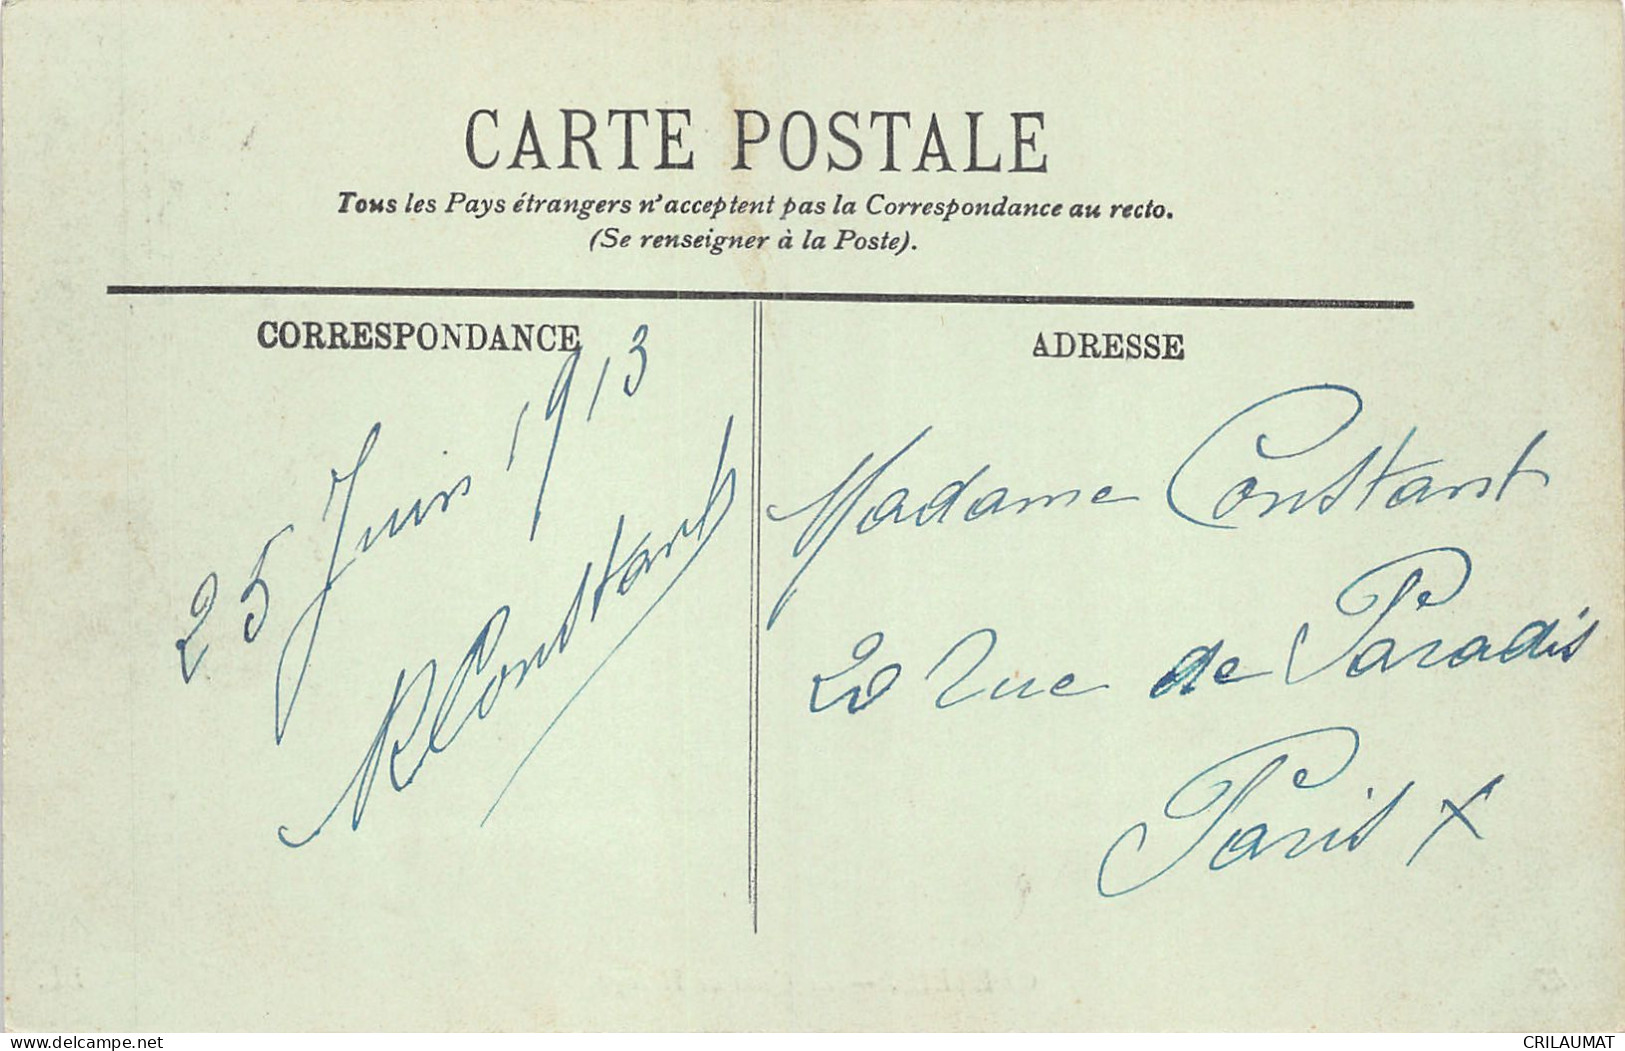 CARTE POSTALE
Tous les Pays étrangers n'acceptent pas la Correspondance au recto.
(Se renseigner à la Poste).
CORRESPONDANCE
25 Juin 1913
R Constant
ADRESSE
Madame Constant
20 rue de Paradis
Paris X
delcampe.net
CRILAUMAT